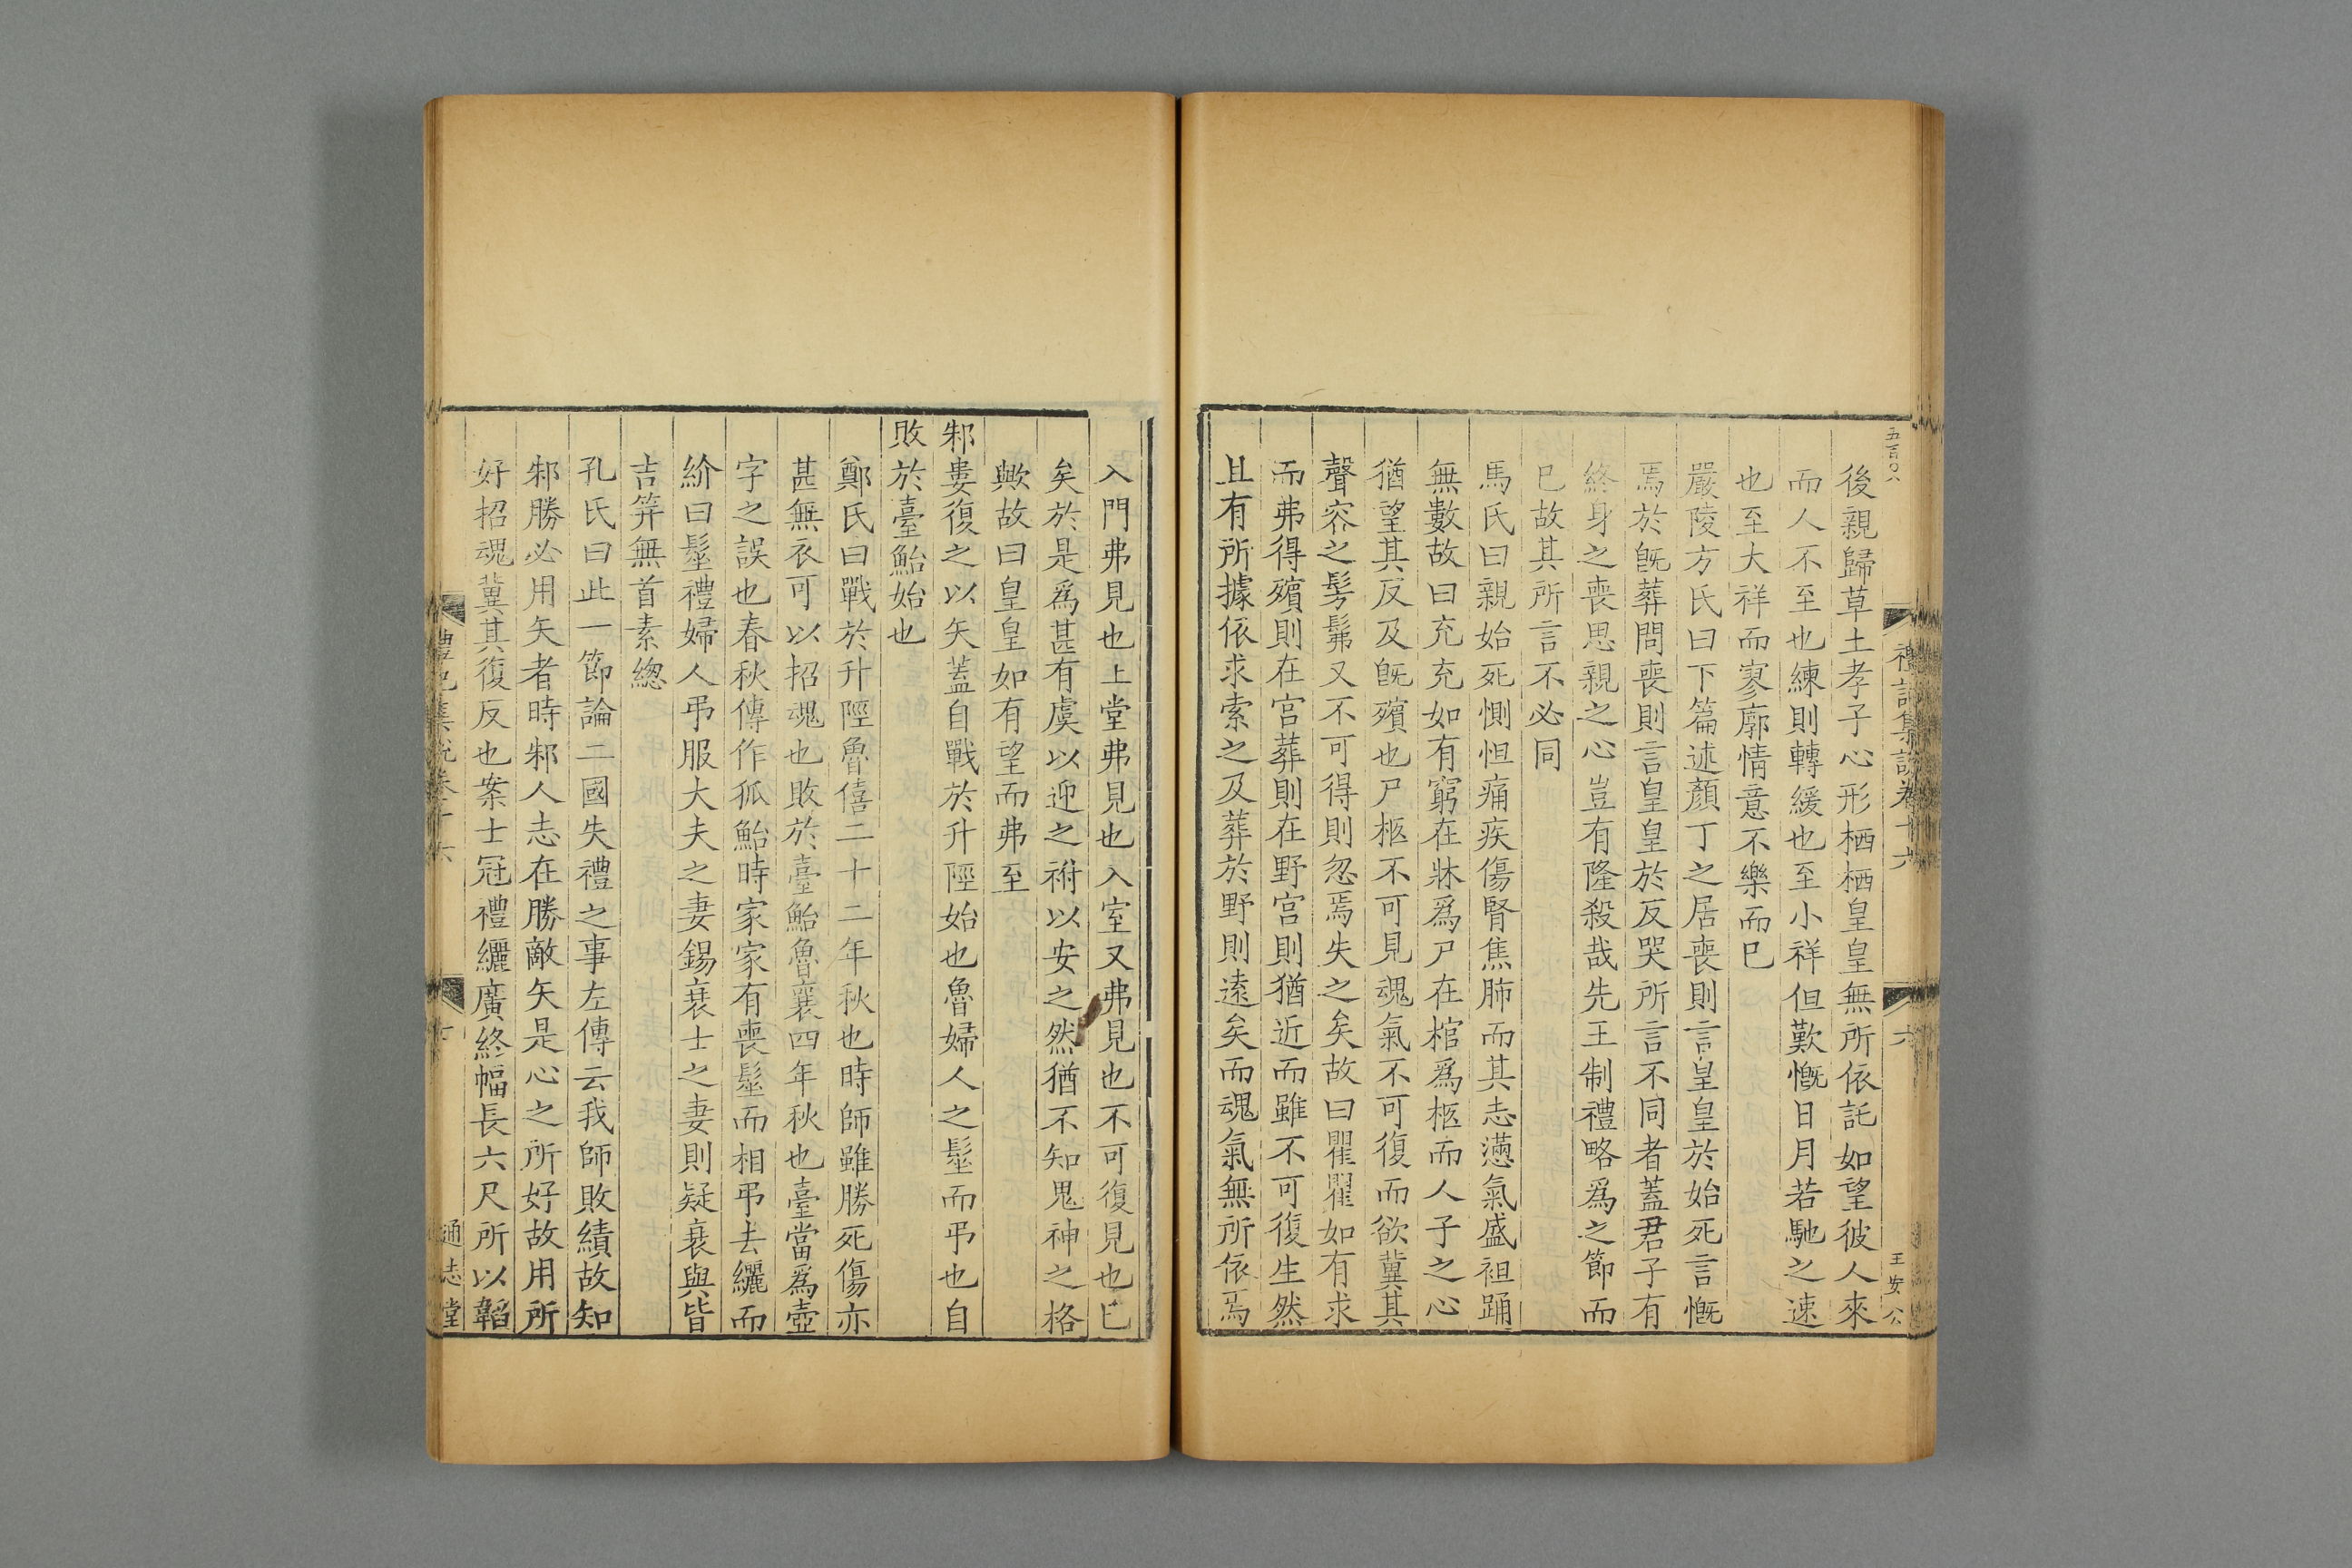 五百〇八
禮記集說卷十六
六
王安公
後親歸草土孝子心形栖栖皇皇無所依託如望彼人來
而人不至也練則轉緩也至小祥但歎慨日月若馳之速
也至大祥而寥廓情意不樂而巳
嚴陵方氏曰下篇述顏丁之居喪則言皇皇於始死言慨
焉於旣葬問喪則言皇皇於反哭所言不同者蓋君子有
終身之喪思親之心豈有隆殺哉先王制禮略爲之節而
巳故其所言不必同
馬氏曰親始死惻怛痛疾傷腎焦肺而其志懣氣盛袒踊
無數故曰充充如有窮在牀爲尸在棺爲柩而人子之心
猶望其反及旣殯也尸柩不可見魂氣不可復而欲冀其
聲容之髣髴又不可得則忽焉失之矣故曰瞿瞿如有求
而弗得殯則在宮葬則在野宮則猶近而雖不可復生然
且有所據依求索之及葬於野則遠矣而魂氣無所依焉
入門弗見也上堂弗見也入室又弗見也不可復見也巳
矣於是爲甚有虞以迎之祔以安之然猶不知鬼神之格
歟故曰皇皇如有望而弗至
邾婁復之以矢蓋自戰於升陘始也魯婦人之髽而弔也自
敗於臺鮐始也
鄭氏曰戰於升陘魯僖二十二年秋也時師雖勝死傷亦
甚無衣可以招魂也敗於臺鮐魯襄四年秋也臺當爲壺
字之誤也春秋傳作狐鮐時家家有喪髽而相弔去纚而
紒曰髽禮婦人弔服大夫之妻錫衰士之妻則疑衰與皆
吉筓無首素緫
孔氏曰此一節論二國失禮之事左傳云我師敗績故知
邾勝必用矢者時邾人志在勝敵矢是心之所好故用所
好招魂冀其復反也案士冠禮纚廣終幅長六尺所以韜
禮記集說卷十六
七
通志堂